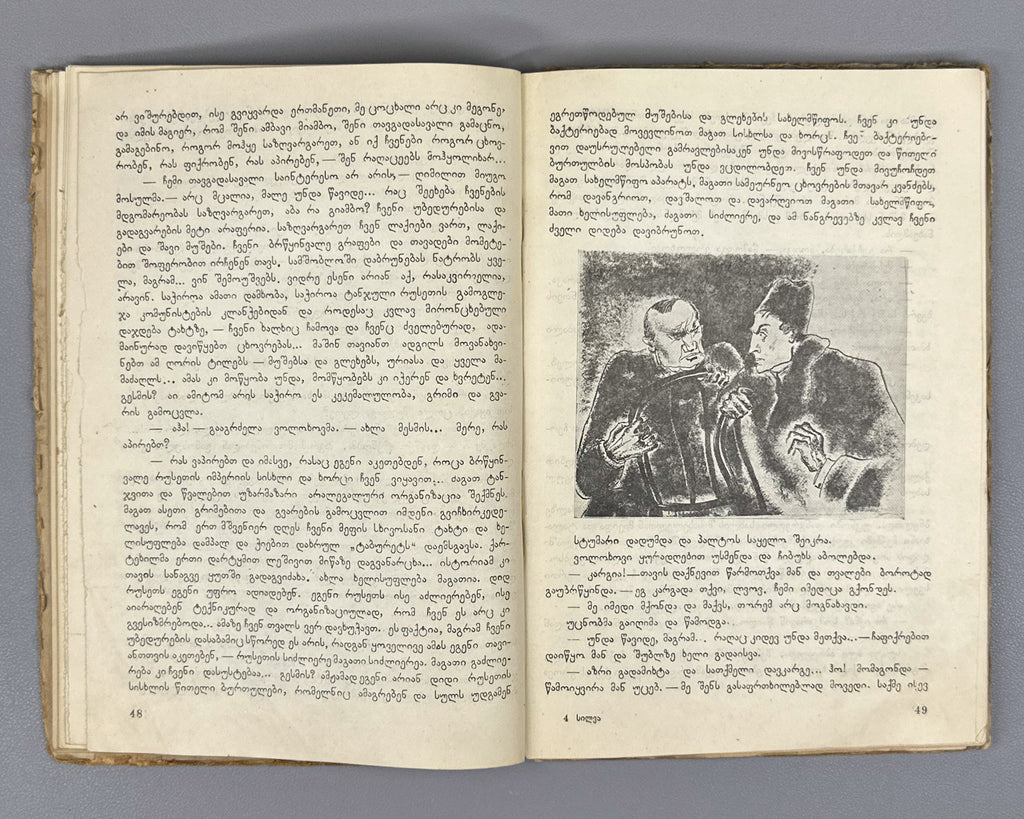 არ ვიშურებდით, ისე გვიყვარდა ერთმანეთი, მე ცოცხალი არც კი მეგონე,
და იმის მაგიერ, რომ შენი ამბავი მიამბო, შენი თავგადასავალი გამაცნო,
გამაგებინო, როგორ მოჰყე საზღვარგარეთ, ან იქ ჩვენები როგორ ცხოვ-
რობენ, რას ფიქრობენ, რას აპირებენ, — შენ რაღაცეებს მოჰყოლიხარ...
— ჩემი თავგადასავალი საინტერესო არ არის, — ღიმილით მიუგო
მოსულმა. — არც მცალია, მალე უნდა წავიდე... რაც შეეხება ჩვენების
მდგომარეობას საზღვარგარეთ, აბა რა გიამბო? ჩვენი უბედურებისა და
გადაგვარების მეტი არაფერია. საზღვარგარეთ ჩვენ ლაქიები ვართ, ლაქი-
ები და შავი მუშები. ჩვენი ბრწყინვალე გრაფები და თავადები მომეტე-
ბით შოფერობით ირჩენენ თავს, სამშობლოში დაბრუნებას ნატრობს ყვე-
ლა, მაგრამ... ვინ შემოუშვებს. ვიდრე ესენი არიან აქ, რასაკვირველია,
არავინ. საჭიროა ამათი დამხობა, საჭიროა ტანჯული რუსეთის გამოგლე-
ჯა კომუნისტების კლანჭებიდან და როდესაც კვლავ მირონცხებული
დაჯდება ტახტზე, — ჩვენი ხალხიც ჩამოვა და ჩვენც ძველებურად, ადა-
მიანურად დავიწყებთ ცხოვრებას... მაშინ თავიანთ ადგილს მოვანახვი-
ნებთ ამ ღორის ტილებს — მუშებსა და გლეხებს, ურიასა და ყველა მა-
მაძაღლს... ამას კი მოწყობა უნდა, მომწყობებს კი იჭერენ და ხვრეტენ...
გესმის? აი ამიტომ არის საჭირო ეს კეკემალულობა, გრიმი და გვა-
რის გამოცვლა.
— აჰა! — გააგრძელა ვოლოხოვმა. — ახლა მესმის... მერე, რას
აპირებთ?
— რას ვაპირებთ და იმასვე, რასაც ეგენი აკეთებდენ, როცა ბრწყინ-
ვალე რუსეთის იმპერიის სისხლი და ხორცი ჩვენ ვიყავით... მაგათ ტან-
ჯვითა და წვალებით უზარმაზარი არალეგალური ორგანიზაცია შექმნეს.
მაგათ ასეთი გრიმებითა და გვარების გამოცვლით იმდენი გვიჩხირკედე-
ლავეს, რომ ერთ მშვენიერ დღეს ჩვენი მეფის სხივოსანი ტახტი და ხე-
ლისუფლება დამპალ და ჭიებით დახრულ „ტაბურეტს“ დაემსგავსა. ქარ-
ტეხილმა ერთი დარტყმით ლეშივით მიწაზე დაგვანარცხა... ისტორიამ კი
თავის სანაგვე ყუთში გადაგვიძახა. ახლა ხელისუფლება მაგათია. დიდ
რუსეთს ეგენი უფრო ადიადებენ. ეგენი რუსეთს ისე აძლიერებენ, ისე
აიარაღებენ ტექნიკურად და ორგანიზაციულად, რომ ჩვენ ეს არც კი
გვესიზმრებოდა... ამაზე ჩვენ თვალს ვერ დავხუჭავთ. ეს ფაქტია, მაგრამ ჩვენი
უბედურების დასაბამიც სწორედ ეს არის, რადგან ყოველივე ამას ეგენი თავი-
ანთთვის აკეთებენ, — რუსეთის სიძლიერე მაგათი სიძლიერეა. მაგათი გაძლიე-
რება კი ჩვენი დასუსტებაა... გესმის? ამჟამად ეგენი არიან დიდი რუსეთის
სისხლის წითელი ბურთულები, რომელნიც ამაგრებენ და სულს უდგამენ
48
ეგრეთწოდებულ მუშებისა და გლეხების სახელმწიფოს. ჩვენ კი უნდა
ბაქტერიებად მოვევლინოთ მაგათ სისხლსა და ხორცს. ჩვენ ბაქტერიები-
ვით დაუსრულებელი გამრავლებისაკენ უნდა მივისწრაფოდეთ და წითელი
ბურთულბის მოსპობას უნდა ვცდილობდეთ. ჩვენ უნდა მივუჩოჩდეთ
მაგათ სახელმწიფო აპარატს, მაგათი სამეურნეო ცხოვრების მთავარ კვანძებს,
რომ დავანგრიოთ, დავშალოთ და დავარღვიოთ მაგათი სახელმწიფო,
მათი ხელისუფლება, მაგათი სიძლიერე, და ამ ნანგრევებზე კვლავ ჩვენი
ძველი დიდება დავიბრუნოთ.
სტუმარი დადუმდა და პალტოს საყელო შეიკრა.
ვოლოხოვი ყურადღებით უსმენდა და ჩიბუხს აბოლებდა.
— კარგია! — თავის დაქნევით წარმოთქვა მან და თვალები ბოროტად
გაუბრწყინდა. — ეგ კარგადა თქვი, ლვოვ. ჩემი იმედიცა გქონდეს.
— მე იმედი მქონდა და მაქვს, თორემ არც მოგნახავდი.
უცნობმა გაიღიმა და წამოდგა.
— უნდა წავიდე, მაგრამ... რაღაც კიდევ უნდა მეთქვა... — ჩაფიქრებით
დაიწყო მან და შუბლზე ხელი გადაისვა.
— აზრი გადამიხტა და სათქმელი დავკარგე... ჰო! მომაგონდა —
წამოიყვირა მან უცებ. — მე შენს გასაფრთხილებლად მოვედი. საქმე ისევ
4 სილვა
49